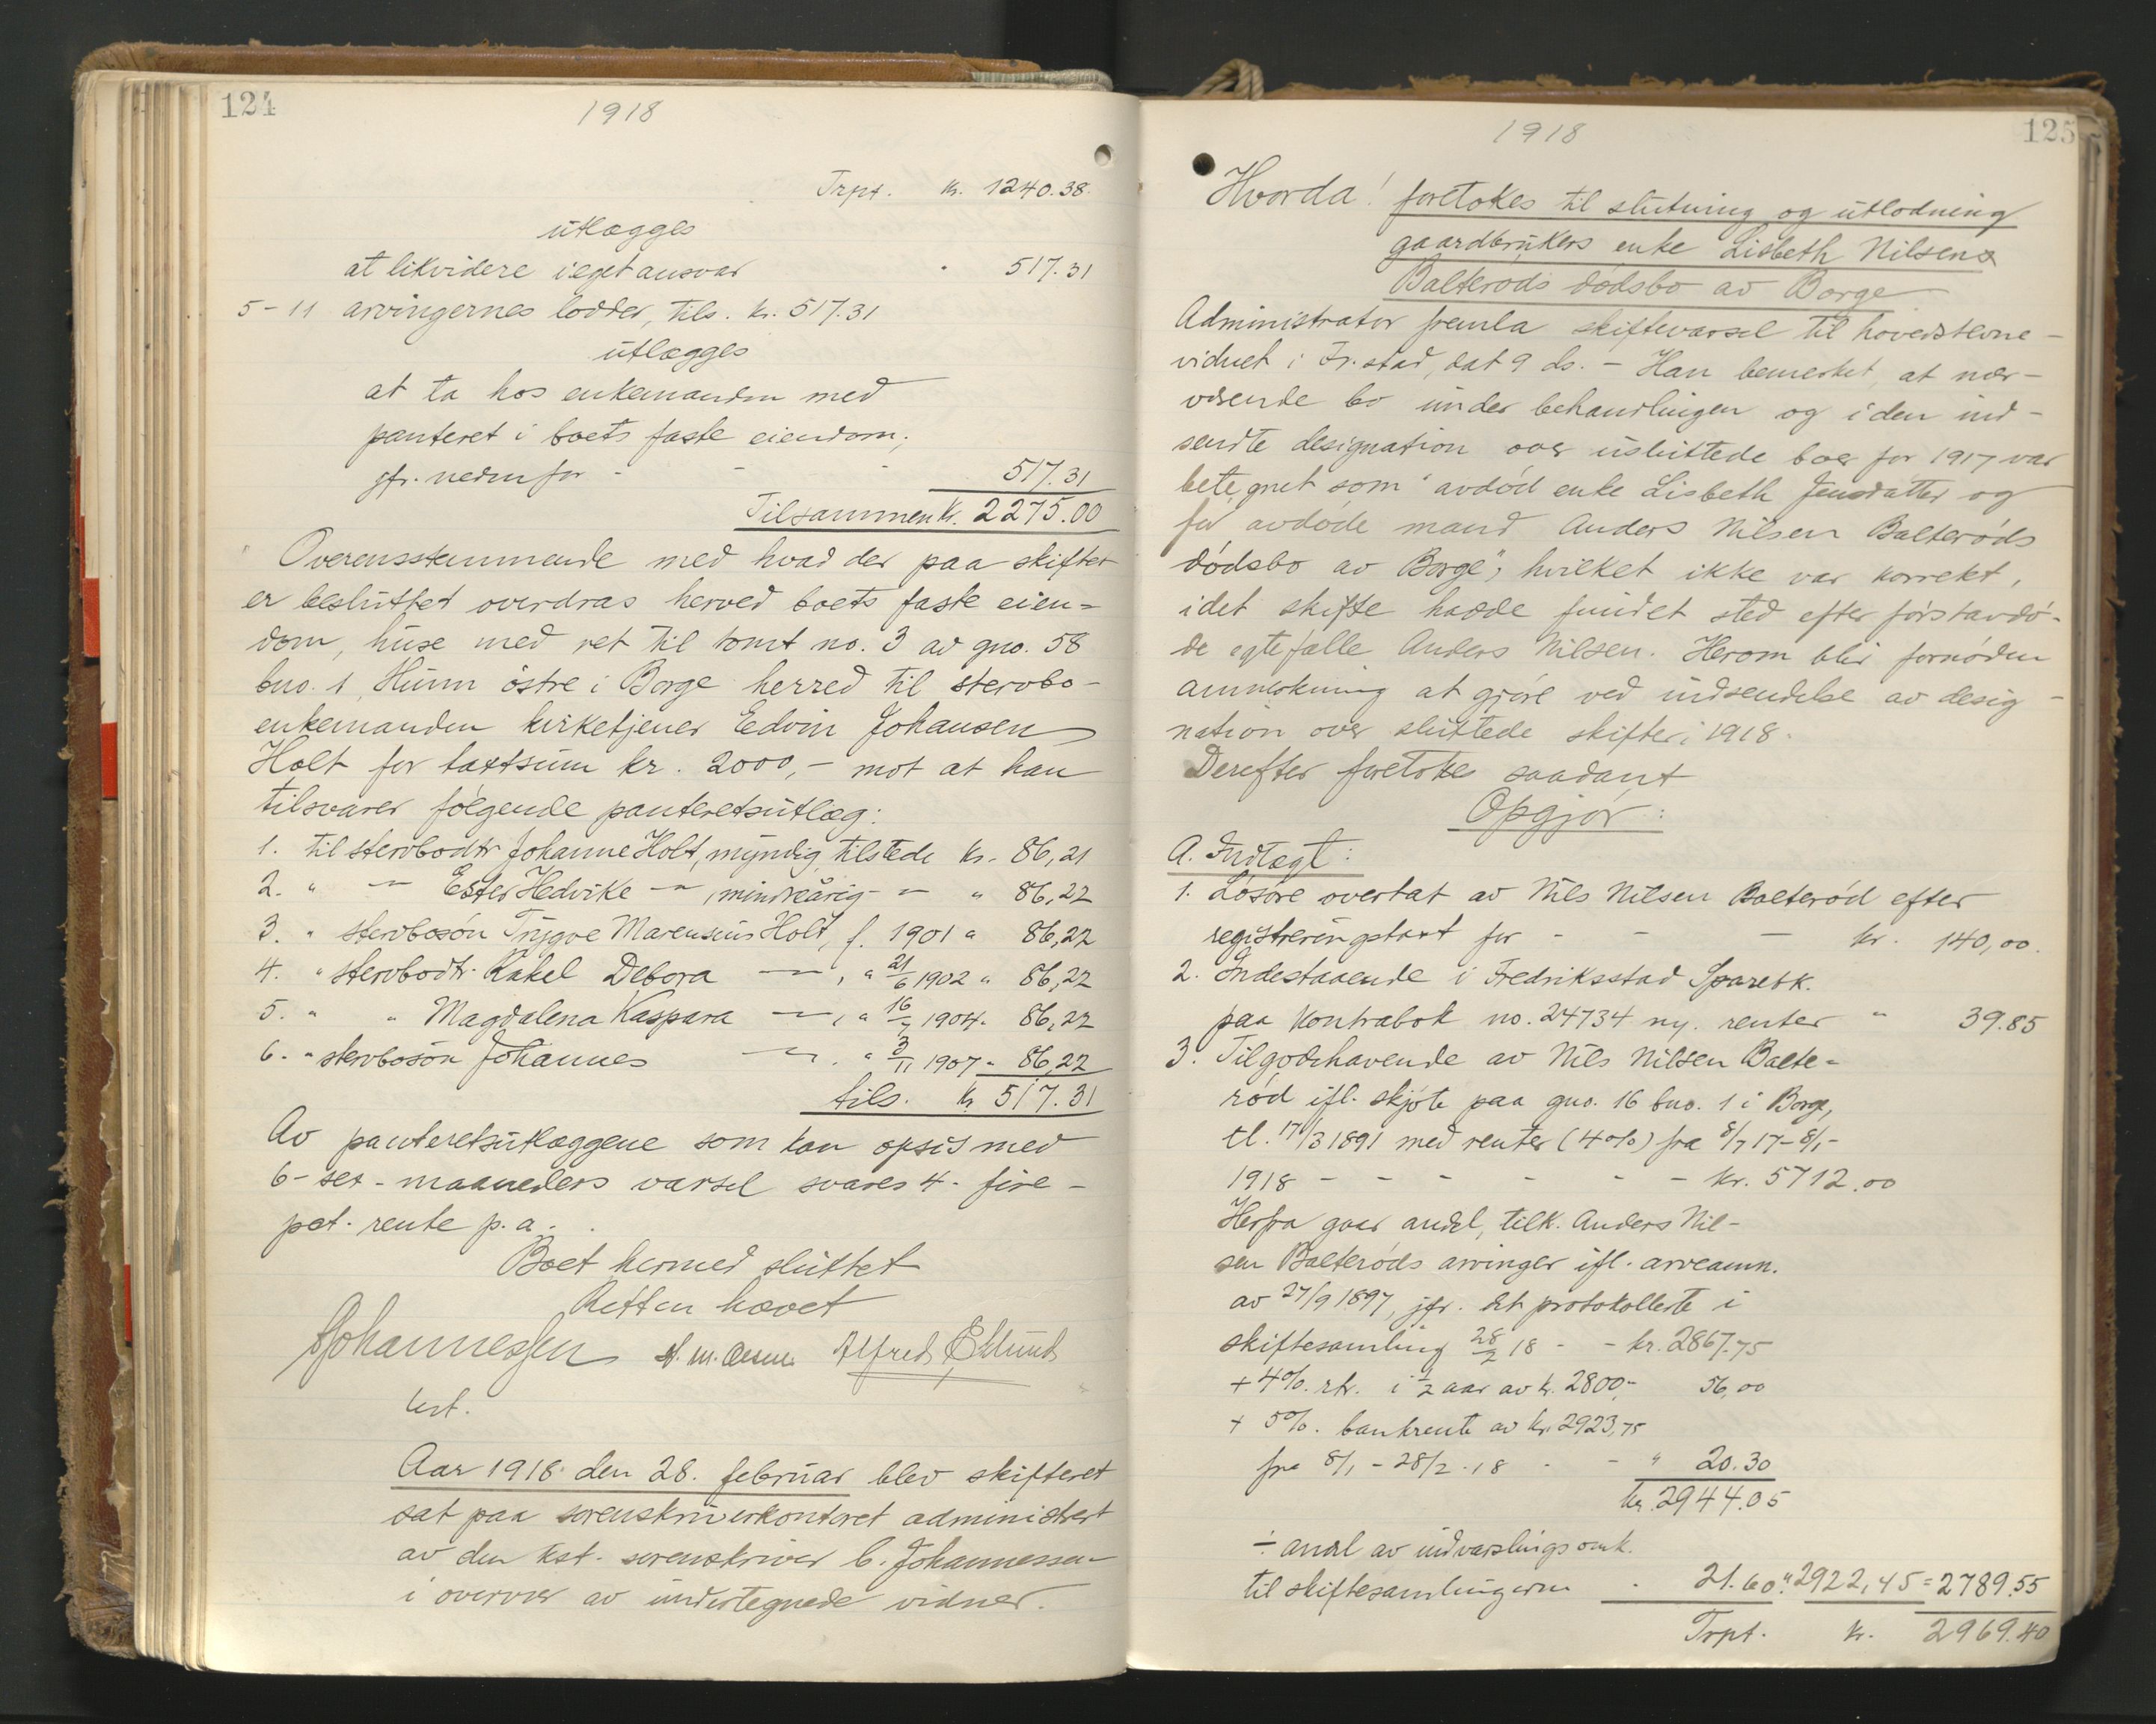 124
1918
Trpt. kr. 1240.38.
utlægges
at likvidere i eget ansvar " 517.31
5-11 arvingernes lodder, tils. kr. 517.31
utlægges
at ta hos enkemanden med
panteret i boets faste eiendom,
jfr. nedenfor - - - 517.31
Tilsammen kr. 2275.00
Overensstemmende med hvad der paa skiftet
er besluttet overdras herved boets faste eien=
dom, huse med ret til tomt no. 3 av gno. 58
bno. 1 Hunn østre i Borge herred til stervbo-
enkemanden kirketjener Edvin Johansen
Holt for taxtsum kr. 2000,- mot at han
tilsvarer følgende panteretsutlæg:
1. til stervbodtr Johanne Holt, myndig, tilstede kr. 86,21
2. " — Ester Hedvike — , mindreårig — " 86,22
3. " stervbosøn Trygve Marensius Holt, f. 1901 " 86,22
4. " stervbodtr. Rakel Debora — , " 21/6 1902 " 86,22
5. " " Magdalena Kaspara — , " 16/7 1904 " 86,22
6. " stervbosøn Johannes — , " 3/11 1907 " 86,22
tils. kr 517.31
Av panteretsutlæggene som kan opsis med
6-sex-maaneders varsel svares 4-fire-
pct. rente p.a.
Boet hermed sluttet
Retten hævet
Johannessen Alfred Eklund
kst.
Aar 1918 den 28. februar blev skifteret
sat paa sorenskriverkontoret administrert
av den kst. sorenskriver C. Johannessen
i overvær av undertegnede vidner.
1918
125
Hvorda! foretokes til slutning og utlodning
gaardbrukers enke Lisbeth Nilsens
Balterøds dødsbo av Borge
Administrator fremla skiftevarsel til hovedstevne-
vidnet i Fr.stad, dat 9 ds. - Han bemerket, at nær-
værende bo under behandlingen og i den ind-
sendte designation over usluttede boer for 1917 var
betegnet som "avdød enke Lisbeth Jensdatter og
før avdøde mand Anders Nilsen Balterøds
dødsbo av Borge", hvilket ikke var korrekt,
idet skifte hadde fundet sted efter førstavdø-
de egtefælle Anders Nilsen. Herom blir fornøden
anmerkning at gjøre ved indsendelse av desig-
nation over sluttede skifter i 1918.
Derefter foretokes saadant
Opgjør:
A. Indtægt:
1. Løsøre overtat av Nils Nilsen Balterød efter
registreringstaxt for - - - kr. 140,00.
2. Indestaaende i Fredriksstad Sparebk.
paa kontrabok no. 24734 ny. renter " 39.85
3. Tilgodehavende av Nils Nilsen Balte=
rød ifl. skjøte paa gno. 16 bno. 1 i Borge,
tl. 17/3 1891 med renter (4%) fra 8/7 17-8/1-
1918 - - - - - - kr. 5712.00
Herfra gaar andel, tilk. Anders Nil-
sen Balterøds arvinger ifl. arveanm.
av 27/9 1897, jfr. det protokollerte i
skiftesamling 28/2 18 - - kr. 2867.75
+ 4%. rtr. i 1/2 aar av kr. 2800,- 56,00
+ 5%. bankrente av kr. 2923,75
fra 8/1 - 28/2-18 - - " 20.30
kr. 2944.05
÷ andel av indvarslingsomk.
til skiftesamlingerne - 21.60 " 2922,45 = 2789.55
Trpt. kr. 2969.40